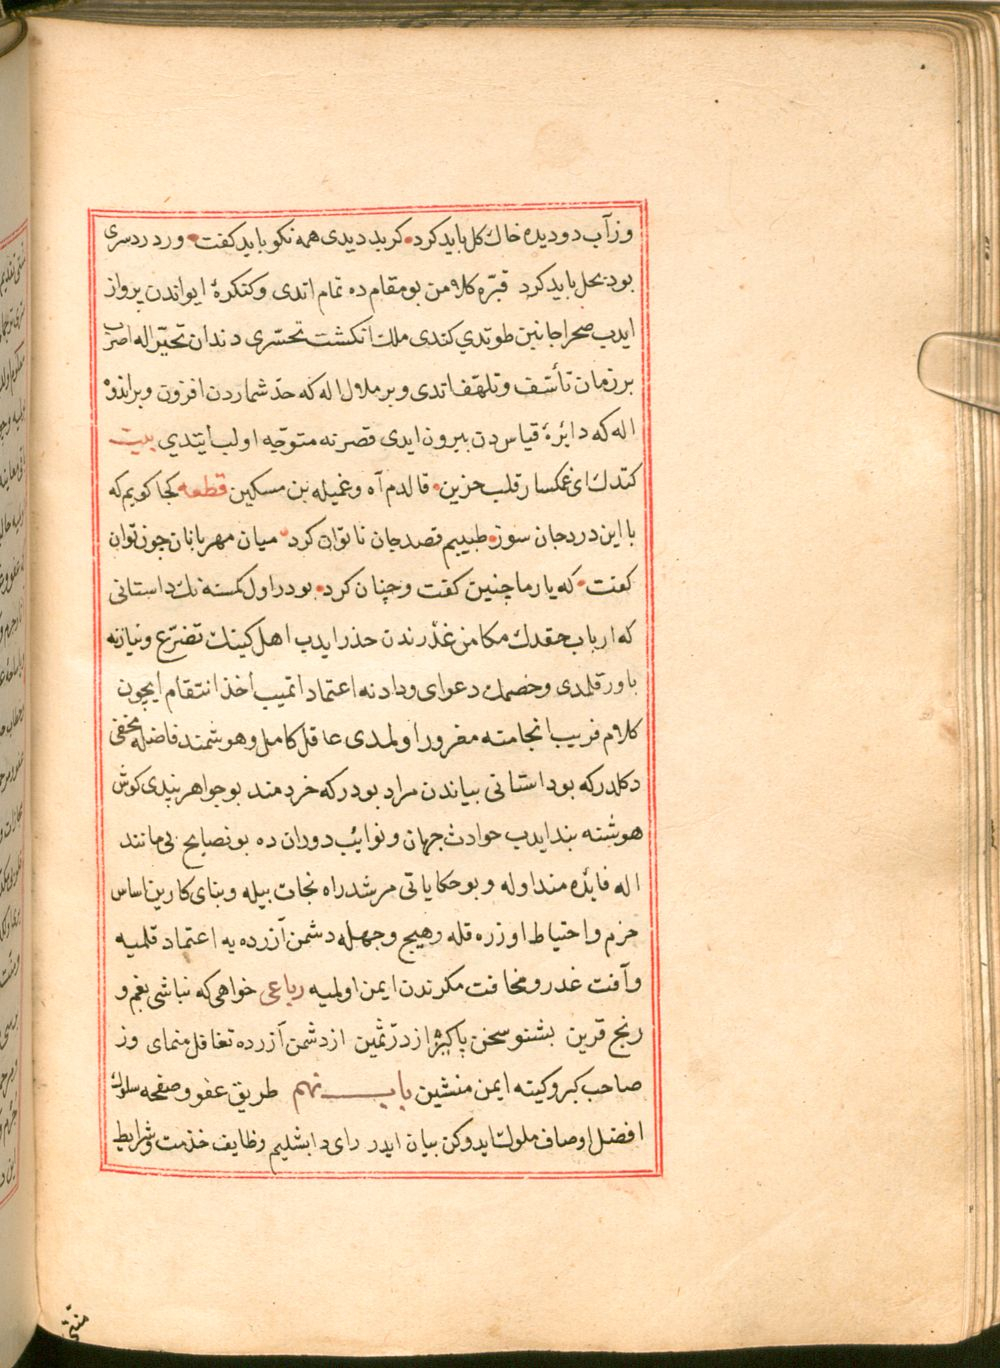 وز آب دو دیده خاك كل باید كرد • كر بد دیدی همه نكو باید كفت • ور دردسری
بود بحل باید كرد قبّره كلامن بو مقامده تمام اتدی وكنكرهٔ ایواندن پرواز
ایدب صحرا جانبن طوتدی كتدی ملك انكشت تحسّری دندان تحیّر اله اصرب
بر زمان تأسّف وتلهّف اتدی وبر ملال اله كه حدّ شماردن افزون وبر اندوه
اله كه دایرهٔ قیاسدن بیرون ایدی قصرنه متوجّه اولب ایتدی بیت
كتدك ای غمكسار قلب حزین • قالدم آه وغمیله بن مسكین قطعه كجا كویم كه
با این درد جان سوز • طبیبم قصد جان ناتوان كرد • میان مهربانان چون توان
كفت • كه یار ما چنین كفت وچنان كرد • بودر اول كمسنه نك داستانی
كه ارباب حقدك مكامن غدرندن حذر ایدب اهل كینك تضرّع ونیازنه
باور قلمدی وخصمك دعوای ودادنه اعتماد اتمیب اخذ انتقام ایچون
كلام فریب انجامنه مغرور اولمدی عاقل كامل وهوشمند فاضله مخفی
دكلدر كه بو داستانی بیاندن مراد بودر كه خردمند بو جواهر پندی كوش
هوشنه بند ایدب حوادث جهان ونوایب دورانده بو نصایح بی مانند
اله فایده مند اوله وبو حكایاتی مرشد راه نجات بیله وبنای كارین اساس
حزم واحتیاط اوزره قله وهیچ وجهله دشمن آزرده یه اعتماد قلمیه
وآفت غدر ومخافت مكرندن ایمن اولمیه رباعی خواهی كه نباشی بغم و
رنج قرین بشنو سخن پاكیزه از درّ ثمین از دشمن آزرده تغافل منمای وز
صاحب كبر وكینه ایمن منشین باب نهم طریق عفو وصفحه سلوك
افضل اوصاف ملوك ایدوكن بیان ایدر رای دابشلیم وظایف خدمت وشرایط